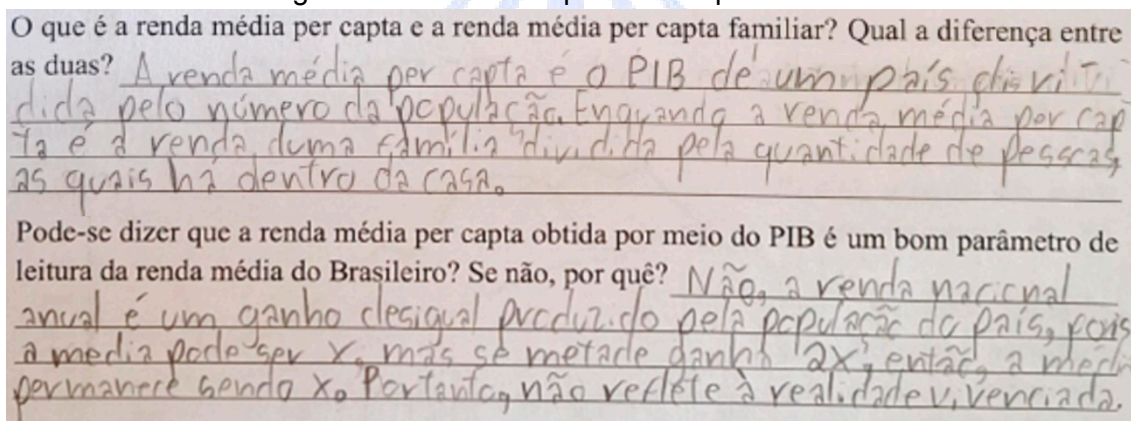 O que é a renda média per capta e a renda média per capta familiar? Qual a diferença entre
as duas? A renda média per capta é o PIB de um país divi
dida pelo número da população. Enquando a renda média per cap
ta é a renda duma família dividida pela quantidade de pessoas,
as quais há dentro da casa.
Pode-se dizer que a renda média per capta obtida por meio do PIB é um bom parâmetro de
leitura da renda média do Brasileiro? Se não, por quê? Não, a renda nacional
anual é um ganho desigual produzido pela população do país, pois
a media pode ser x, mas se metade ganha 2x, então, a médi
permanece sendo x. Portanto, não reflete à realidade vivenciada.